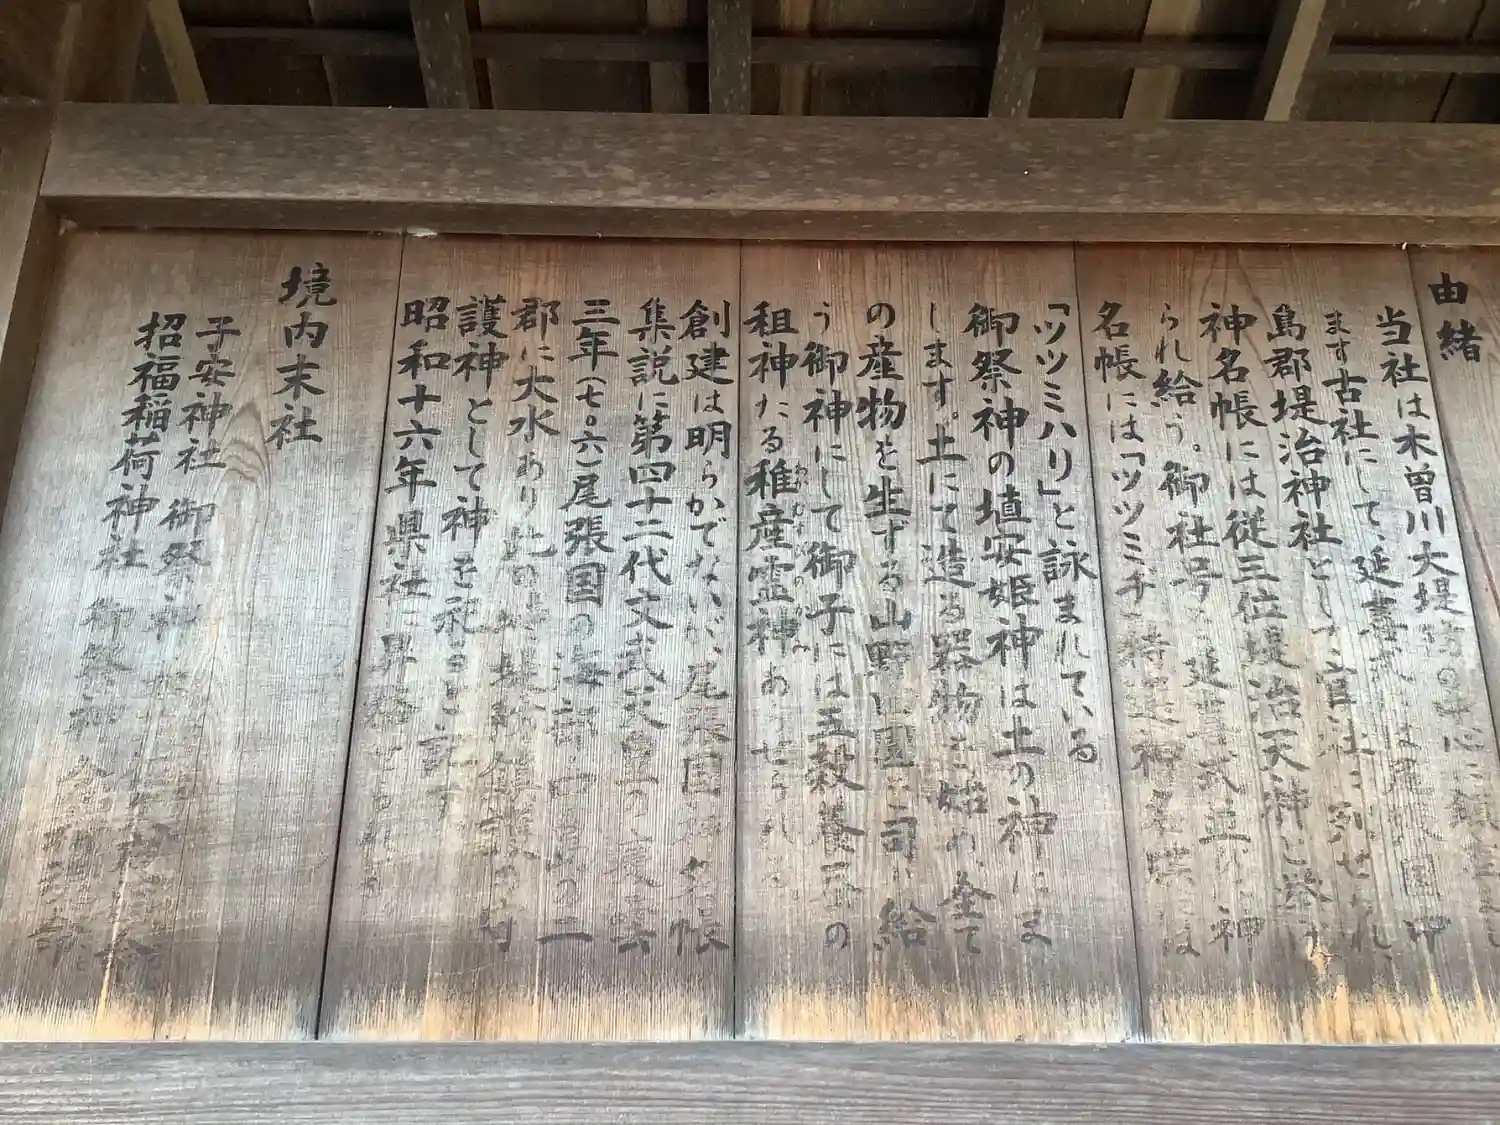 由緒
当社は木曽川大堤防の中心に鎮座し
ます古社にして、延喜式には尾張国中
島郡堤治神社として官社に列せられ、
神名帳には従三位堤治天神と
られ給う。御社号は延喜式正の神
名帳には「ツツミチ」と特に
「ツツミハリ」と詠まれている
御祭神の埴安姫神は土の神にま
します。土にて造る器物を始め、全て
の産物を生ずる山野田園を司り給
う御神にして御子には五穀養蚕の
租神たる稚産霊神あり
創建は明らかでないが、尾張国神名帳
集説に第四十二代文武天皇の慶雲
三年(七〇六)尾張国の海部 中島の二
郡に大水あり此の時堤防鎮護の守
護神として神を祀ると記す
昭和十六年県社に昇格
境内末社
子安神社 御祭神
招福稲荷神社 御祭神